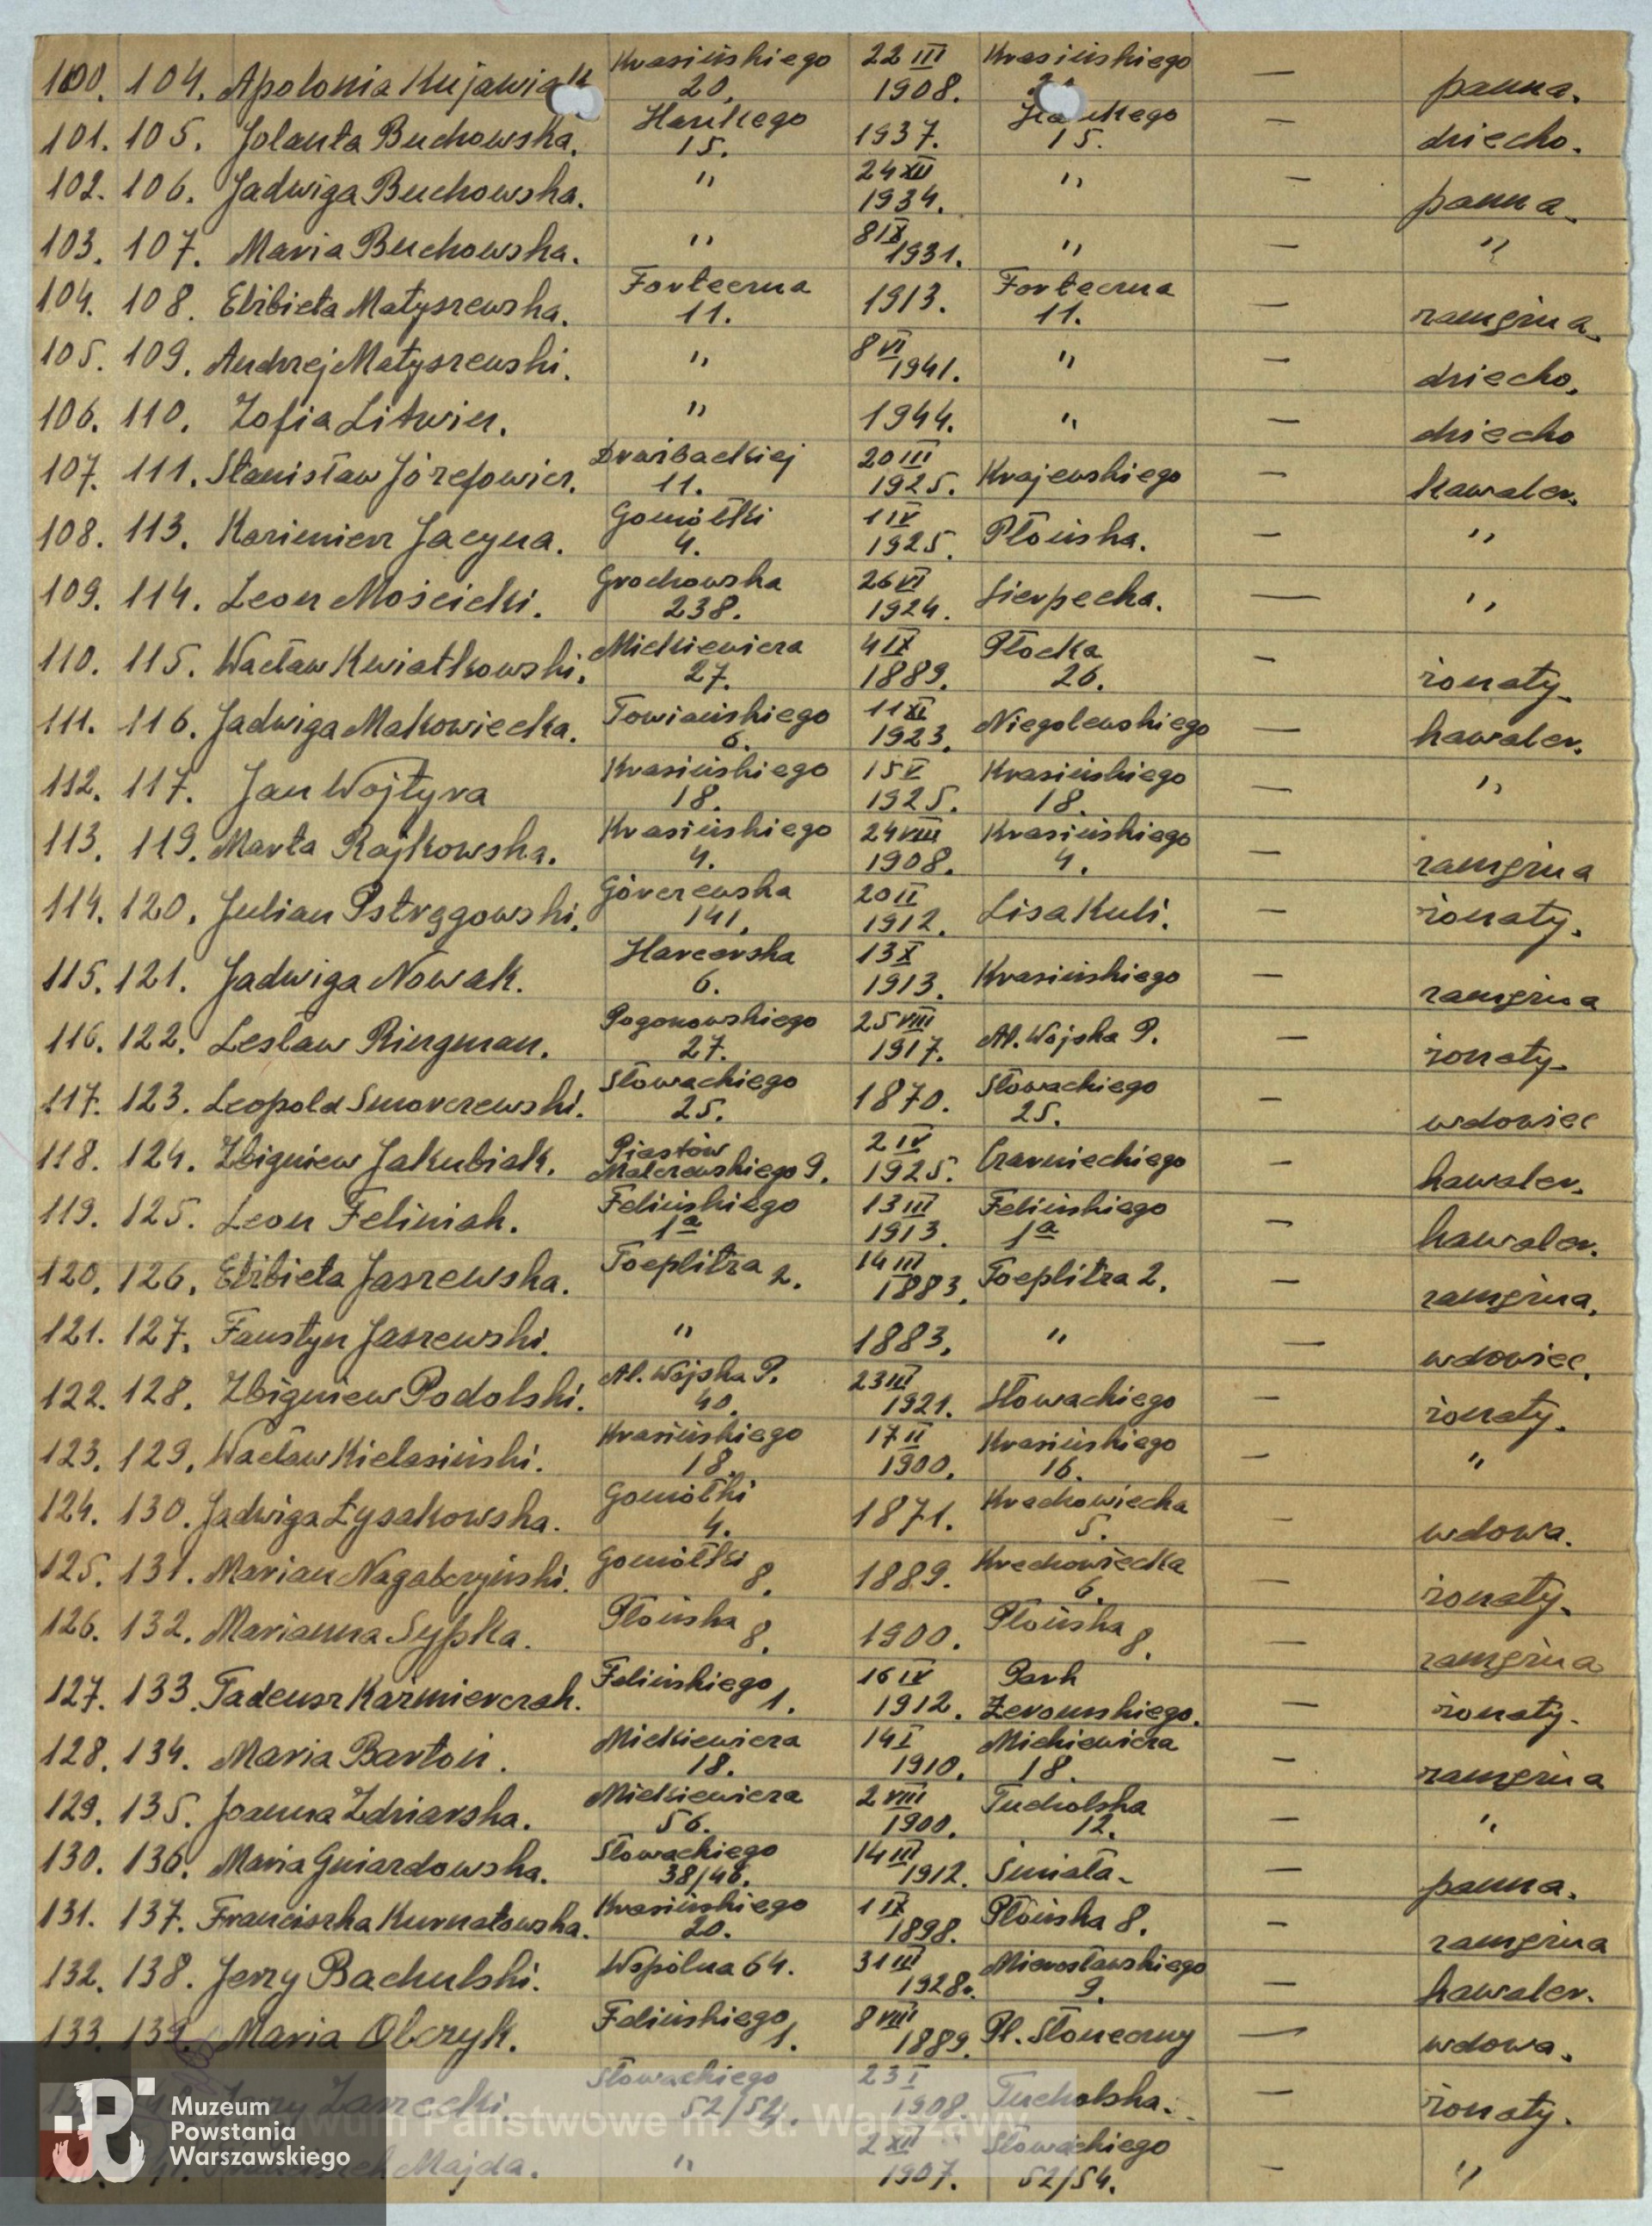 100. 104. Apolonia Kujawiak Krasińskiego 20. 22 III 1908. Krasińskiego — panna.
101. 105. Jolanta Buchowska. Haukego 15. 1937. Haukego 15. — dziecko.
102. 106. Jadwiga Buchowska. " 24 XII 1934. " — panna.
103. 107. Maria Buchowska. " 8 IX 1931. " — "
104. 108. Elżbieta Matyszewska. Forteczna 11. 1913. Forteczna 11. — zamężna.
105. 109. Andrzej Matyszewski. " 8 VI 1941. " — dziecko.
106. 110. Zofia Litwin. " 1944. " — dziecko
107. 111. Stanisław Józefowicz. Drużbackiej 11. 20 III 1925. Krajewskiego — kawaler.
108. 113. Kazimierz Jacyna. Gomółki 4. 1 IV 1925. Płońska. — "
109. 114. Leon Mościcki. Grochowska 238. 26 VI 1924. Sierpecka. — "
110. 115. Wacław Kwiatkowski. Mickiewicza 27. 4 IX 1889. Płocka 26. — żonaty.
111. 116. Jadwiga Makowiecka. Towiańskiego 6. 11 XI 1923. Niegolewskiego — kawaler.
112. 117. Jan Wojtyra Krasińskiego 18. 15 V 1925. Krasińskiego 18. — "
113. 119. Marta Rajkowska. Krasińskiego 4. 24 VIII 1908. Krasińskiego 4. — zamężna
114. 120. Julian Pstrągowski. Górczewska 141. 20 II 1912. Lisa Kuli. — żonaty.
115. 121. Jadwiga Nowak. Harcerska 6. 13 X 1913. Krasińskiego — zamężna
116. 122. Lesław Ringman. Pogonowskiego 27. 25 VIII 1917. Al. Wojska P. — żonaty.
117. 123. Leopold Smorczewski. Słowackiego 25. 1870. Słowackiego 25. — wdowiec
118. 124. Zbigniew Jakubiak. Piastów Malczewskiego 9. 2 IV 1925. Czarnieckiego — kawaler.
119. 125. Leon Feliniak. Felińskiego 1a 13 III 1913. Felińskiego 1a — kawaler.
120. 126. Elżbieta Jaszewska. Toeplitza 2. 14 III 1883. Toeplitza 2. — zamężna.
121. 127. Faustyn Jaszewski. " 1883. " — wdowiec.
122. 128. Zbigniew Podolski. Al. Wojska P. 40. 23 III 1921. Słowackiego — żonaty.
123. 129. Wacław Kielasiński. Krasińskiego 18. 17 II 1900. Krasińskiego 16. — "
124. 130. Jadwiga Łysakowska. Gomółki 4. 1871. Krechowiecka 5. — wdowa.
125. 131. Marian Nagabczyński. Gomółki 8. 1889. Krechowiecka 6. — żonaty.
126. 132. Marianna Sypka. Płońska 8. 1900. Płońska 8. — zamężna
127. 133. Tadeusz Kaźmierczak. Felińskiego 1. 16 IV 1912. Park Żeromskiego. — żonaty.
128. 134. Maria Bartoń. Mickiewicza 18. 14 I 1910. Mickiewicza 18. — zamężna
129. 135. Joanna Zdziarska. Mickiewicza 56. 2 VIII 1900. Tucholska 12. — "
130. 136. Maria Gniazdowska. Słowackiego 38/46. 14 III 1912. Śmiała. — panna.
131. 137. Franciszka Kurnatowska. Krasińskiego 20. 1 IX 1898. Płońska 8. — zamężna
132. 138. Jerzy Bachulski. Wspólna 64. 31 III 1928. Mierosławskiego 9. — kawaler.
133. 139. Maria Olczyk. Felińskiego 1. 8 VIII 1889. Pl. Słoneczny — wdowa.
Zarzecki. Słowackiego 52/54. 23 I 1908. Tucholska. — żonaty.
Majda. " 2 XII 1907. Słowackiego 52/54. — "
Muzeum
Powstania
Warszawskiego
Archiwum Państwowe m. St. Warszawy